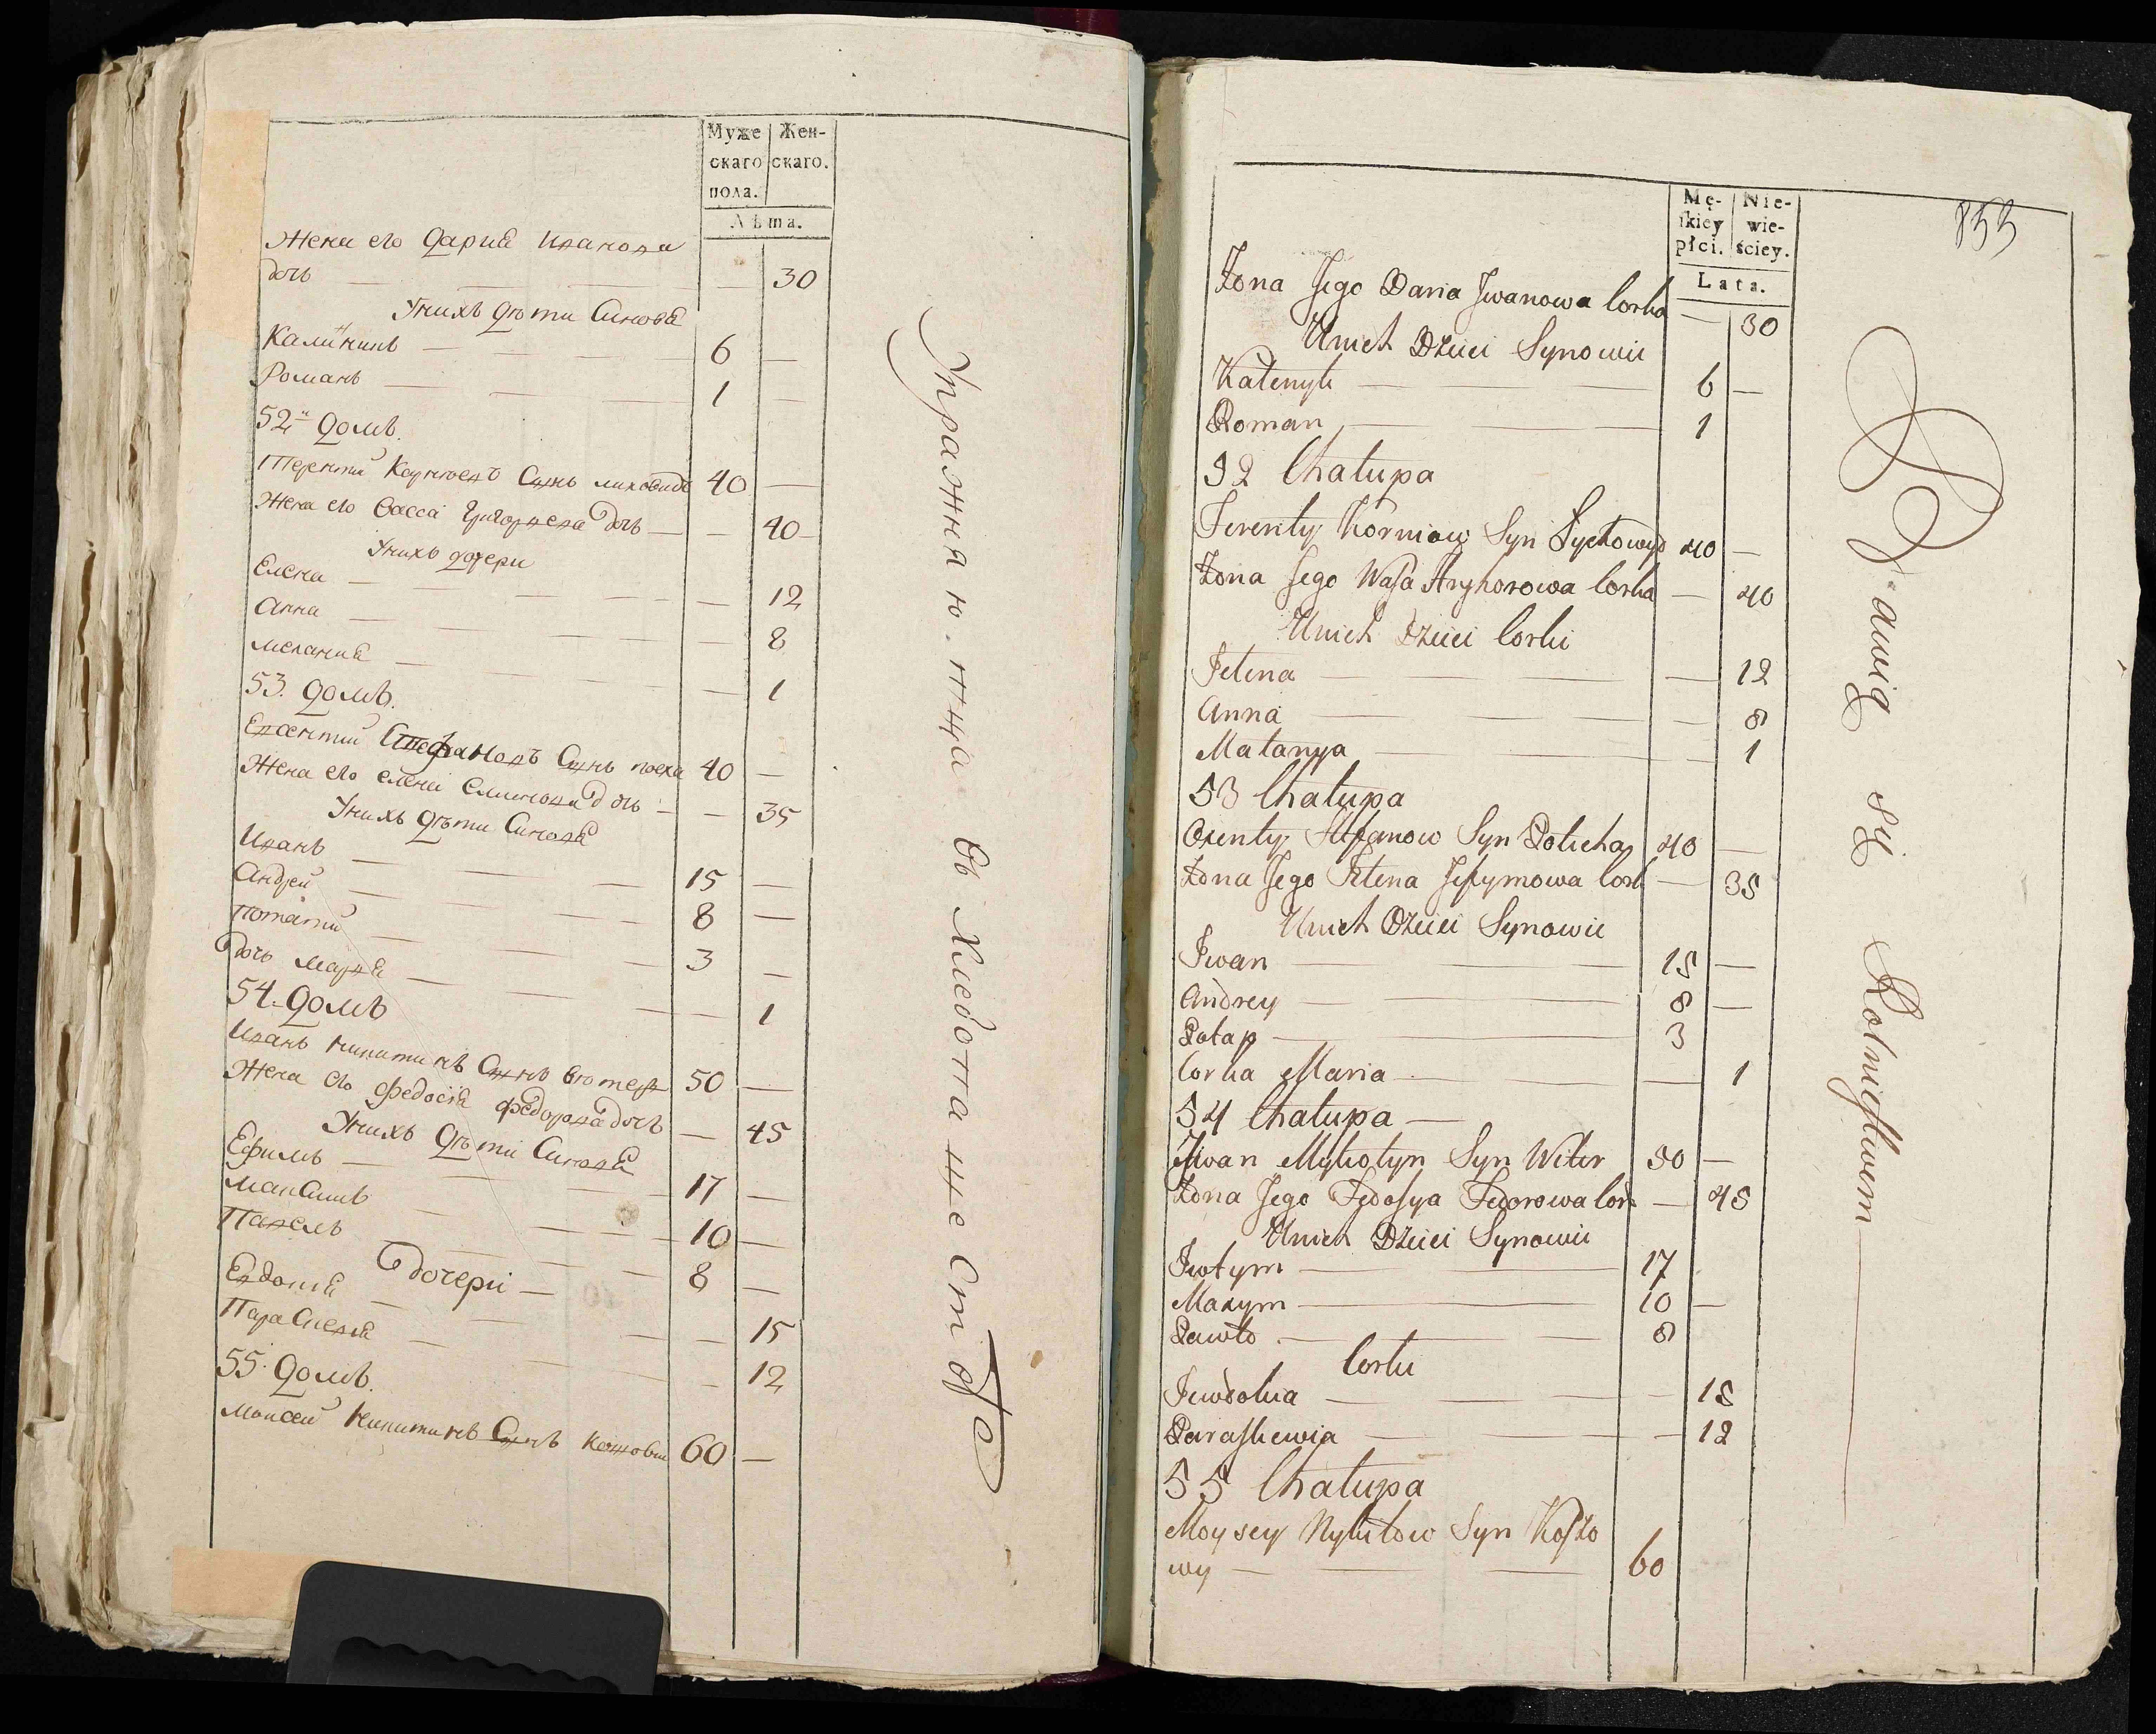 Муже
скаго
пола.
Жен-
скаго.
Лѣта.
Жена его Дариа Иванова
дочь — — — 30
Унихъ дѣти Синовя
Калиникъ — 6 —
Романъ — 1 —
52й домъ.
Терентий Сынъ 40 —
Жена его Васса Григорьева дочь — — 40
Унихъ дочери
Елена — — 12
Анна — — 8
Меланиа — — 1
53. домъ.
Стефановъ Сынъ 40 —
Жена его елена дочь — — 35
Унихъ дѣти Синовя
Иванъ — 15 —
Андрей — 8 —
Потапий — 3 —
дочь Мария — — 1
54. домъ
Иванъ Никитинъ Сынъ 50 —
Жена его Федосия Федорова дочь — 45
Унихъ дѣти Синовя
Ефимъ — 17 —
Максимъ — 10 —
Павелъ — 8 —
дочери —
Евдокия — — 15
Парасковия — — 12
55. домъ.
Моисей Никитинъ Сынъ 60 —
Упражняю.тца въ Хлебопашестве
853
Mę-
skiey
płci.
Nie-
wie-
ściey.
Lata.
Żona Jego Daria Jwanowa Corka — 30
Unich Dzieci Synowii
Kalenyk — 6 —
Roman — 1
52 Chałupa
Terenty Korniow Syn Lychowyd 40 —
Żona Jego Wasa Hryhorowa Corka — 40
Unich Dzieci Corki
Jelena — — 12
Anna — — 8
Malanya — — 1
53 Chałupa
Oxenty Stefanow Syn Policha 40 —
Żona Jego Jelena Jefymowa Cork — 35
Unich Dzieci Synowii
Jwan — 15 —
Andrey — 8 —
Potap — 3
Corka Maria — — 1
54 Chałupa —
Jwan Mykotyn Syn Witer 50 —
Żona Jego Fedosya Fedorowa Cor — 45
Unich Dzieci Synowii
Juchym — 17
Maxym — 10 —
Pawło — 8
Corki
Jewdokia — — 15
Paraskewia — — 12
55 Chałupa
Moysey Nykitow Syn Koszo
wy — 60
Bawią się Rolnictwem —